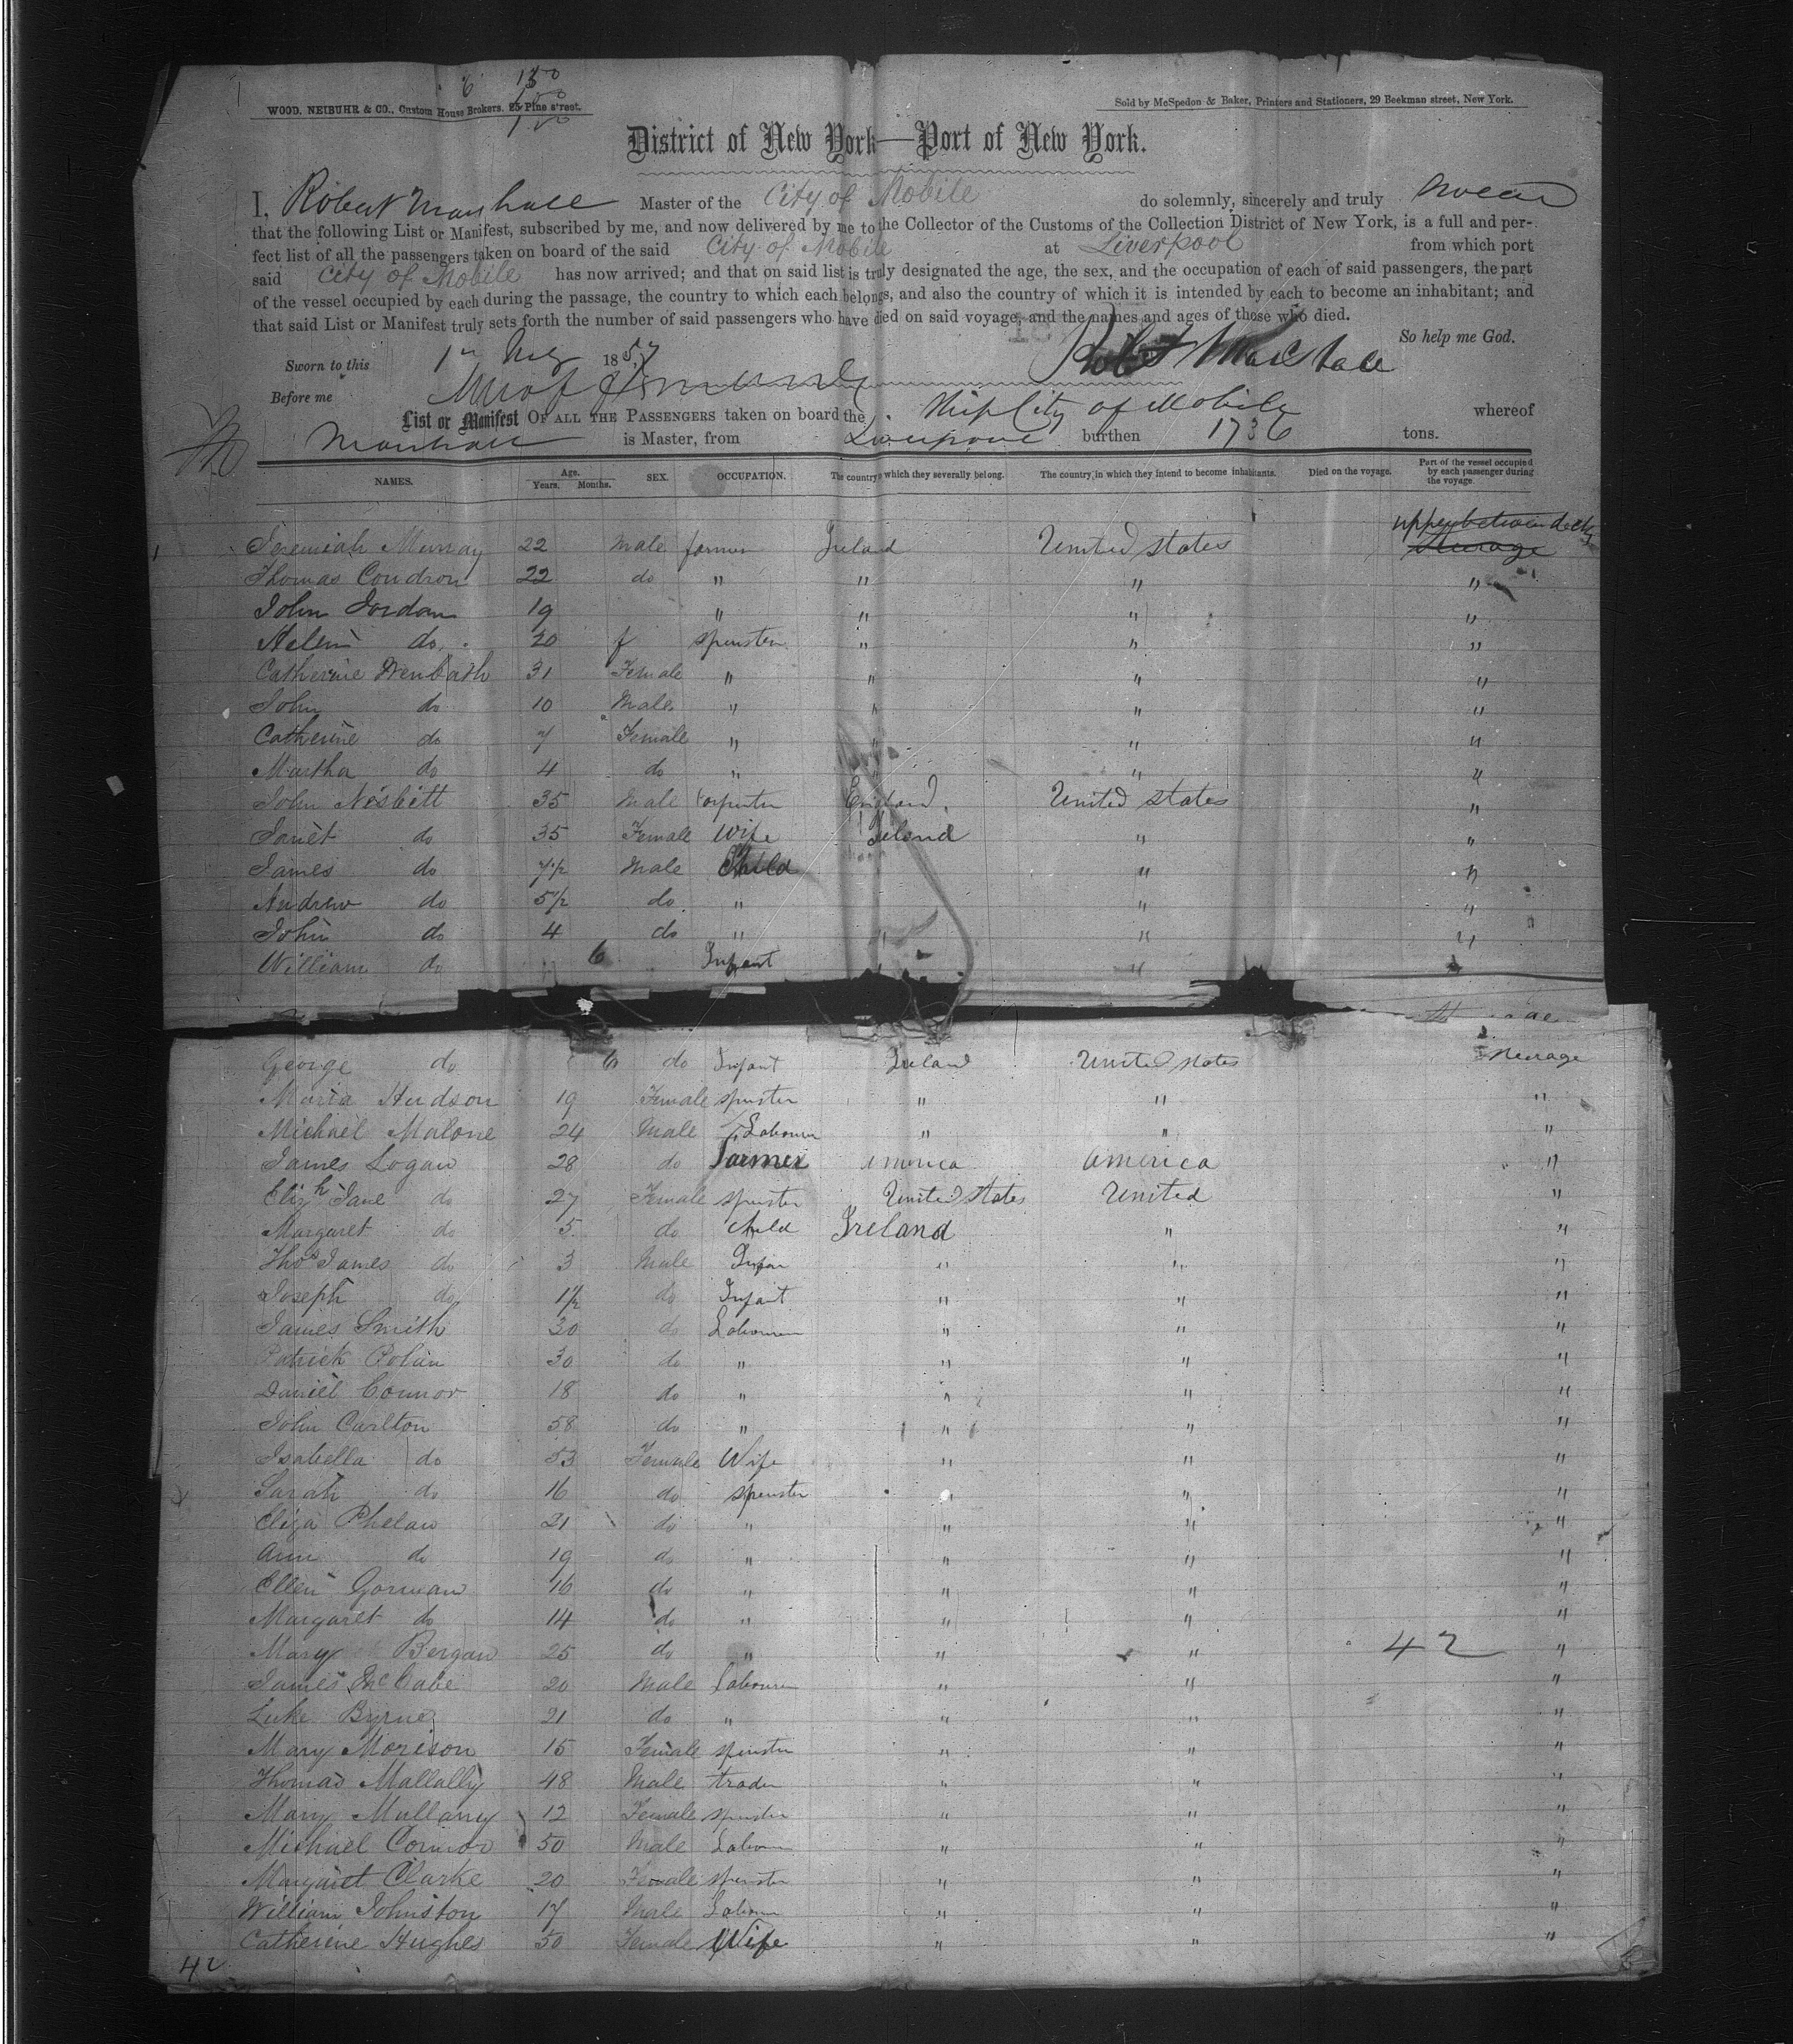 6 150
WOOD, NEIBUHR & CO., Custom House Brokers, 25 Pine street.
Sold by McSpedon & Baker, Printers and Stationers, 29 Beekman street, New York.
District of New York—Port of New York.
I, Robert Marshall Master of the City of Mobile do solemnly, sincerely and truly swear
that the following List or Manifest, subscribed by me, and now delivered by me to the Collector of the Customs of the Collection District of New York, is a full and per-
fect list of all the passengers taken on board of the said City of Mobile at Liverpool from which port
said City of Mobile has now arrived; and that on said list is truly designated the age, the sex, and the occupation of each of said passengers, the part
of the vessel occupied by each during the passage, the country to which each belongs, and also the country of which it is intended by each to become an inhabitant; and
that said List or Manifest truly sets forth the number of said passengers who have died on said voyage, and the names and ages of those who died.
So help me God.
Sworn to this 1 1857 Robt Marshall
Before me
List or Manifest OF ALL THE PASSENGERS taken on board the Ship City of Mobile whereof
Marshall is Master, from Liverpool burthen 1736 tons.
NAMES. Age. Years. Months. SEX. OCCUPATION. The country to which they severally belong. The country in which they intend to become inhabitants. Died on the voyage. Part of the vessel occupied by each passenger during the voyage.
upper between decks
Jeremiah Murray 22 Male farmer Ireland United States Steerage
Thomas Condron 22 do " " " "
John Jordan 19 " " " "
Helen do. 20 f spinster " " "
Catherine 31 Female " " " "
John do 10 Male " " " "
Catherine do 7 Female " " " "
Martha do 4 do " " " "
John Nesbitt 35 Male Carpenter England. United States "
Janet do 35 Female Wife Ireland " "
James do 7½ Male Child " "
Andrew do 5½ do " " "
John do 4 do " " " "
William do 6 Infant "
George do 6 do Infant Ireland United States Steerage
Maria Hudson 19 Female spinster " " "
Michael Malone 24 Male Labourer " " "
James Logan 28 do Farmer America America "
Elizh Jane do 27 Female spinster United States United "
Margaret do 5 do child Ireland " "
Thos James do 3 Male Infan " " "
Joseph do 1½ do Infant " " "
James Smith 30 do Labourer " " "
Patrick Polan 30 do " " " "
Daniel Connor 18 do " " " "
John Carlton 58 do " " " "
Isabella do 53 Female Wife " " "
Sarah do 16 do spinster " " "
Eliza Phelan 21 do " " " "
Ann do 19 do " " " "
Ellen Gorman 16 do " " " "
Margaret do 14 do " " " "
Mary Bergan 25 do " " " 42 "
James McCabe 20 Male Labourer " " "
Luke Byrne 21 do " " " "
Mary Morison 15 Female spinster " " "
Thomas Mallally 48 Male trader " " "
Mary Mullany 12 Female spinster " " "
Michael Connor 50 Male Labour " " "
Margaret Clarke 20 Female spinster " " "
William Johnston 17 Male Labour " " "
Catherine Hughes 50 Female Wife " " "
42